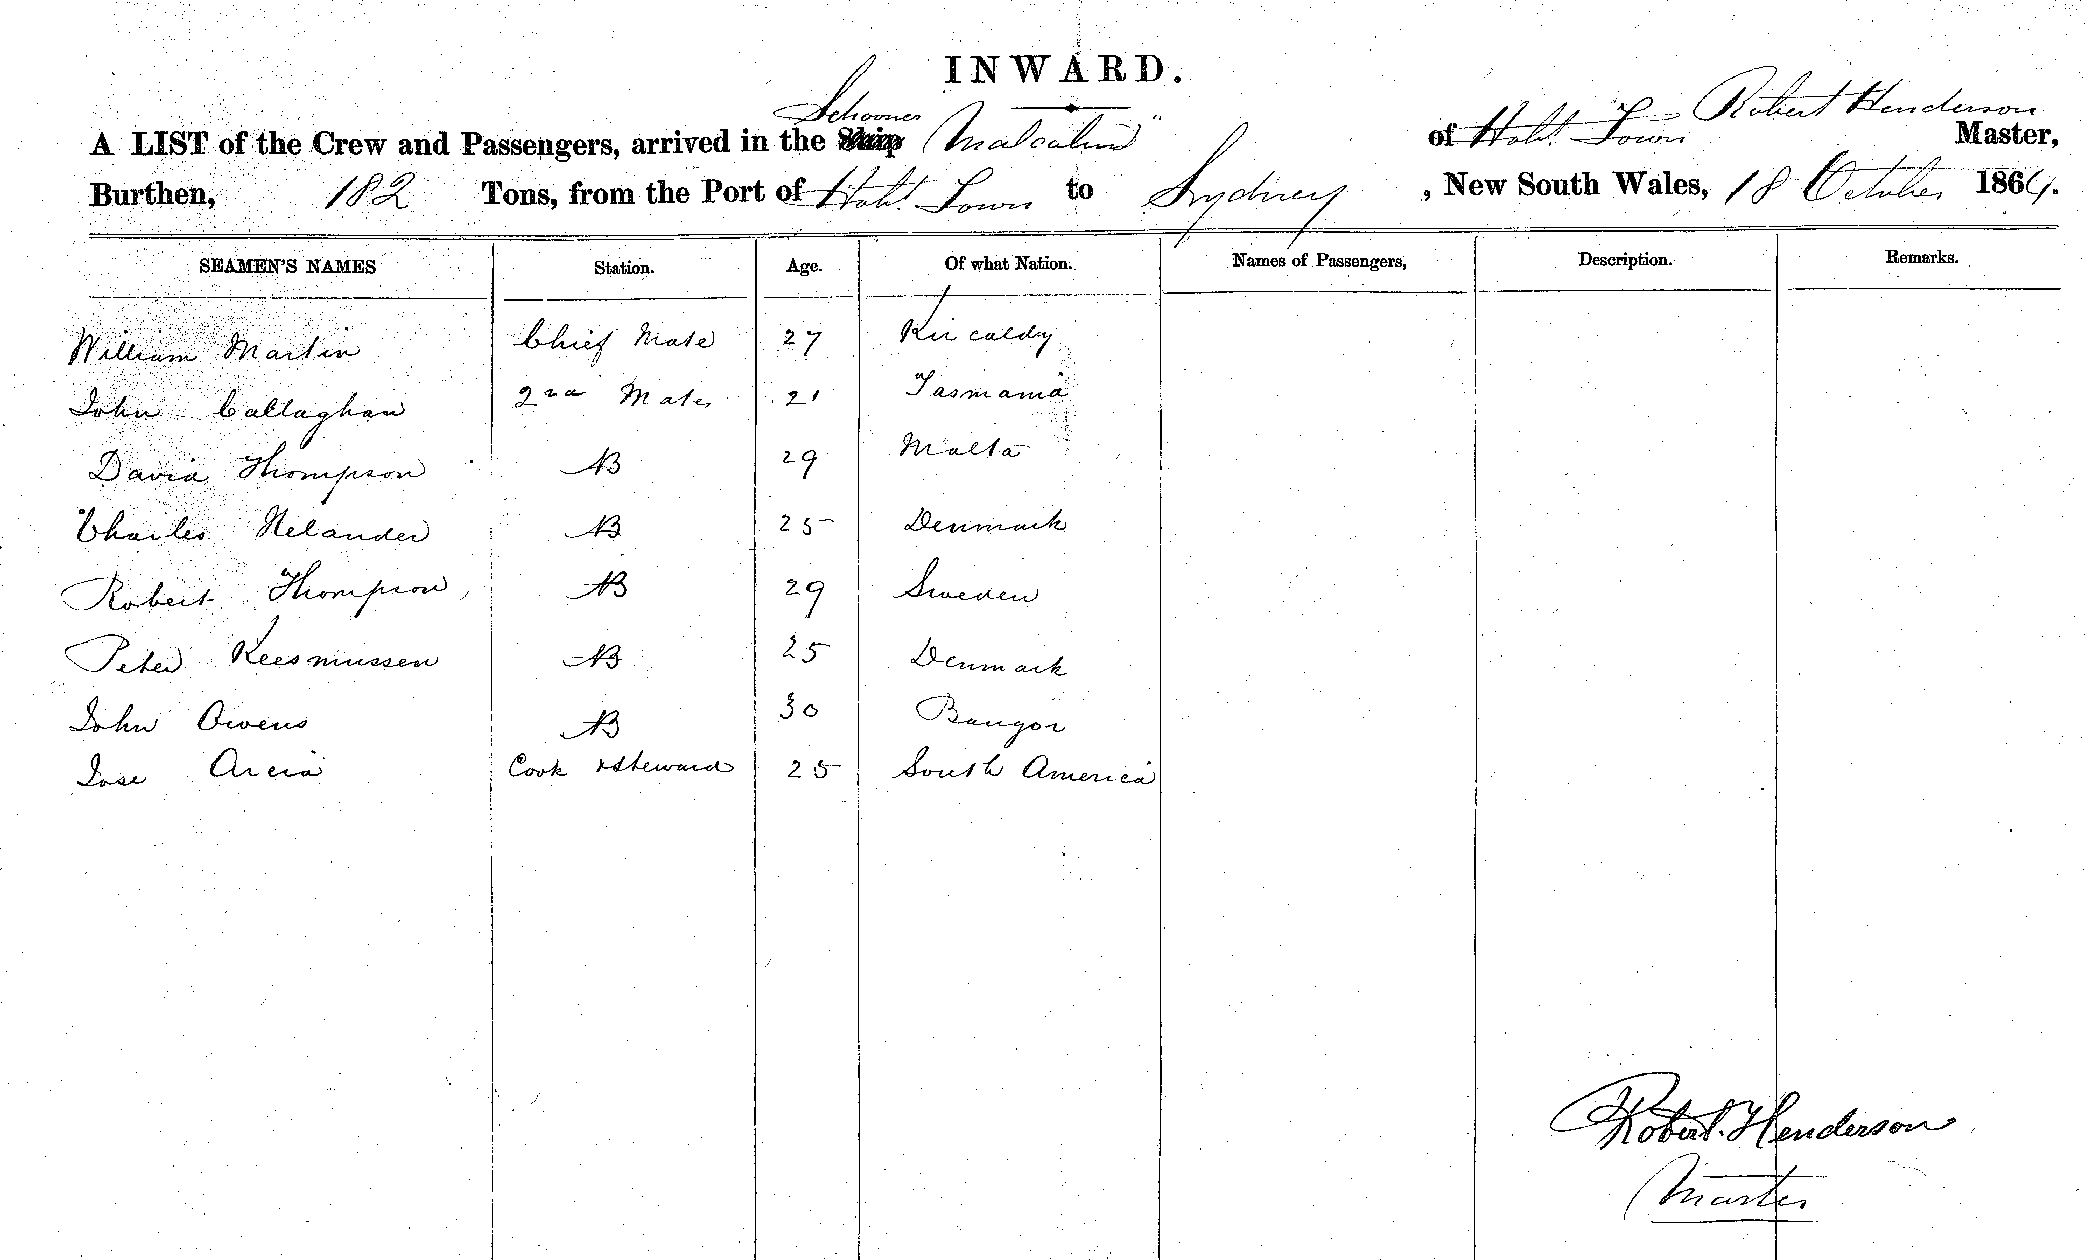 INWARD.
Schooner
A LIST of the Crew and Passengers, arrived in the Ship "Malcolm" of Hobt. Town Robert Henderson Master,
Burthen, 182 Tons, from the Port of Hobt. Town to Sydney, New South Wales, 18 October 1864.
SEAMEN'S NAMES Station. Age. Of what Nation. Names of Passengers, Description. Remarks.
William Martin Chief Mate 27 Kircaldy
John Callaghan 2nd Mate 21 Tasmania
David Thompson AB 29 Malta
Charles Nelander AB 25 Denmark
Robert Thompson AB 29 Sweden
Peter Reesmussen AB 25 Denmark
John Owens AB 30 Bangor
Jose Arcia Cook & Steward 25 South America
Robert Henderson
Master